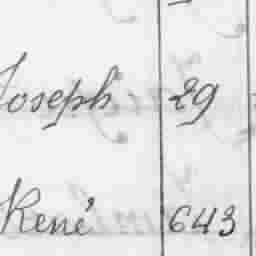 Joseph 29
René 643